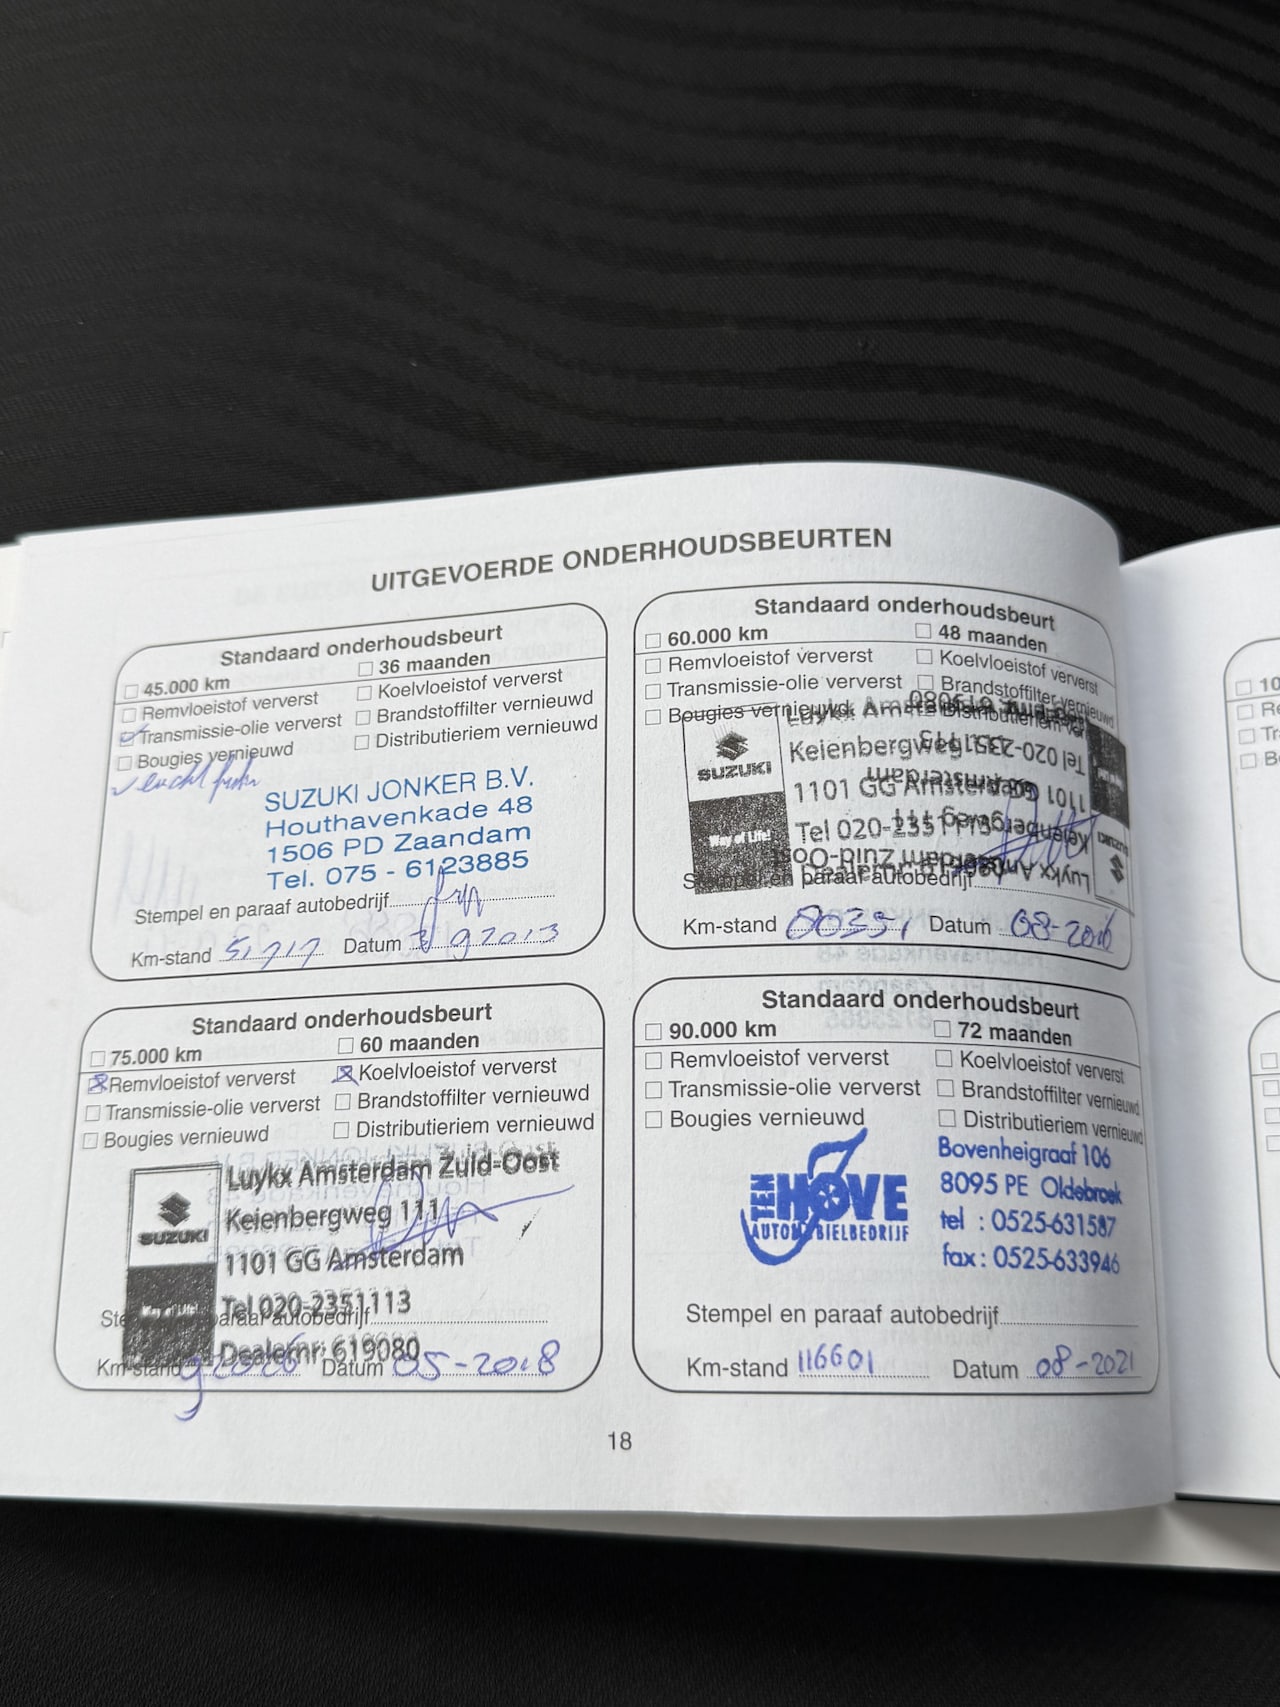 UITGEVOERDE ONDERHOUDSBEURTEN
Standaard onderhoudsbeurt
45.000 km 36 maanden
Remvloeistof ververst Koelvloeistof ververst
Transmissie-olie ververst Brandstoffilter vernieuwd
Bougies vernieuwd Distributieriem vernieuwd
SUZUKI JONKER B.V.
Houthavenkade 48
1506 PD Zaandam
Tel. 075 - 6123885
Stempel en paraaf autobedrijf
Km-stand Datum
Standaard onderhoudsbeurt
60.000 km 48 maanden
Remvloeistof ververst Koelvloeistof ververst
Transmissie-olie ververst Brandstoffilter vernieuwd
Bougies vernieuwd Distributieriem
SUZUKI
Way of Life!
Luykx
Keienbergweg
1101 GG Amsterdam
Tel 020-2351113
Stempel en paraaf autobedrijf
Km-stand Datum 08-2016
Standaard onderhoudsbeurt
75.000 km 60 maanden
Remvloeistof ververst Koelvloeistof ververst
Transmissie-olie ververst Brandstoffilter vernieuwd
Bougies vernieuwd Distributieriem vernieuwd
SUZUKI
Way of Life!
Luykx Amsterdam Zuid-Oost
Keienbergweg 111
1101 GG Amsterdam
Tel 020-2351113
Dealernr: 619080
paraaf autobedrijf
Km-stand Datum 05-2018
Standaard onderhoudsbeurt
90.000 km 72 maanden
Remvloeistof ververst Koelvloeistof ververst
Transmissie-olie ververst Brandstoffilter vernieuwd
Bougies vernieuwd Distributieriem vernieuwd
TEN HOVE
AUTOMOBIELBEDRIJF
Bovenheigraaf 106
8095 PE Oldebroek
tel : 0525-631587
fax : 0525-633946
Stempel en paraaf autobedrijf
Km-stand 116601 Datum 08-2021
18